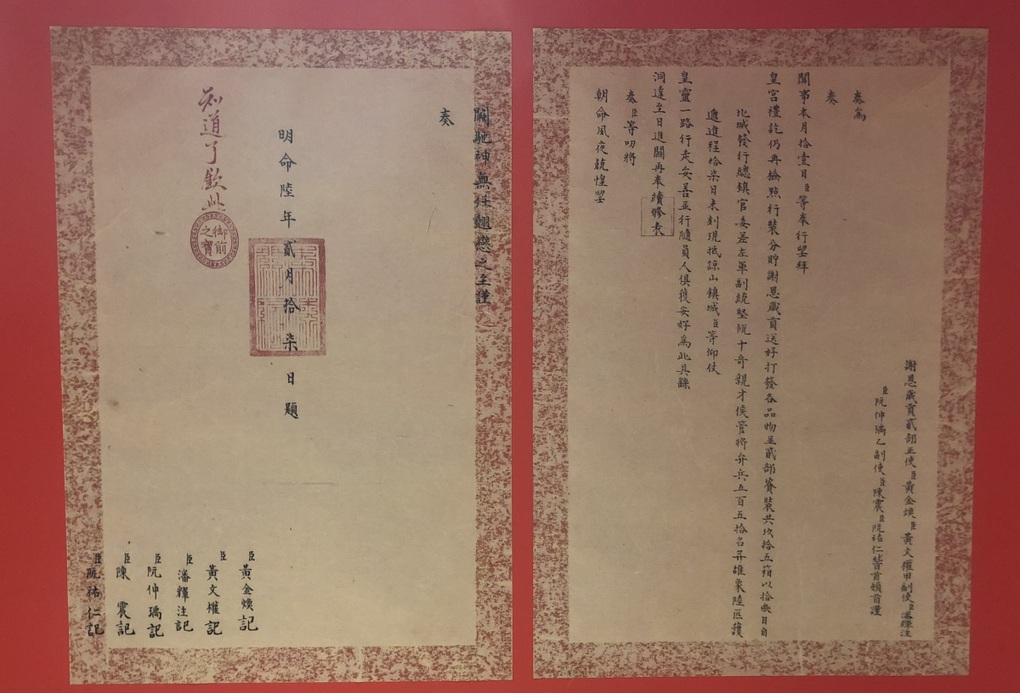 謝恩歲貢貳部正使臣黃金煥臣黃文權甲副使臣潘輝注
臣阮仲瑀乙副使臣陳震臣阮祐仁等首頓首謹
奏為
奏
聞事本月拾壹日臣等奉行望拜
皇宮禮訖仍再撿照行裝分貯謝恩歲貢送好打發各品物並貳部賫裝共玖拾五箱以拾叁日自
北城發行總鎮官委差左軍副統堅銳十奇親才侯管將弁兵五百五拾名并雄象陸匹護
遞進程拾柒日未刻現抵諒山鎮城臣等仰仗
皇靈一路行走安善並行隨員人俱獲安好為此具錄
洞達至日進關再奉續
奏臣等叨將
朝命夙夜兢惶望
闕馳神無任翹戀之至謹
奏
明命陸年貳月拾柒日題
臣黃金煥記
臣黃文權記
臣潘輝注記
臣阮仲瑀記
臣陳震記
臣阮祐仁記
知道了欽此
御前之寶